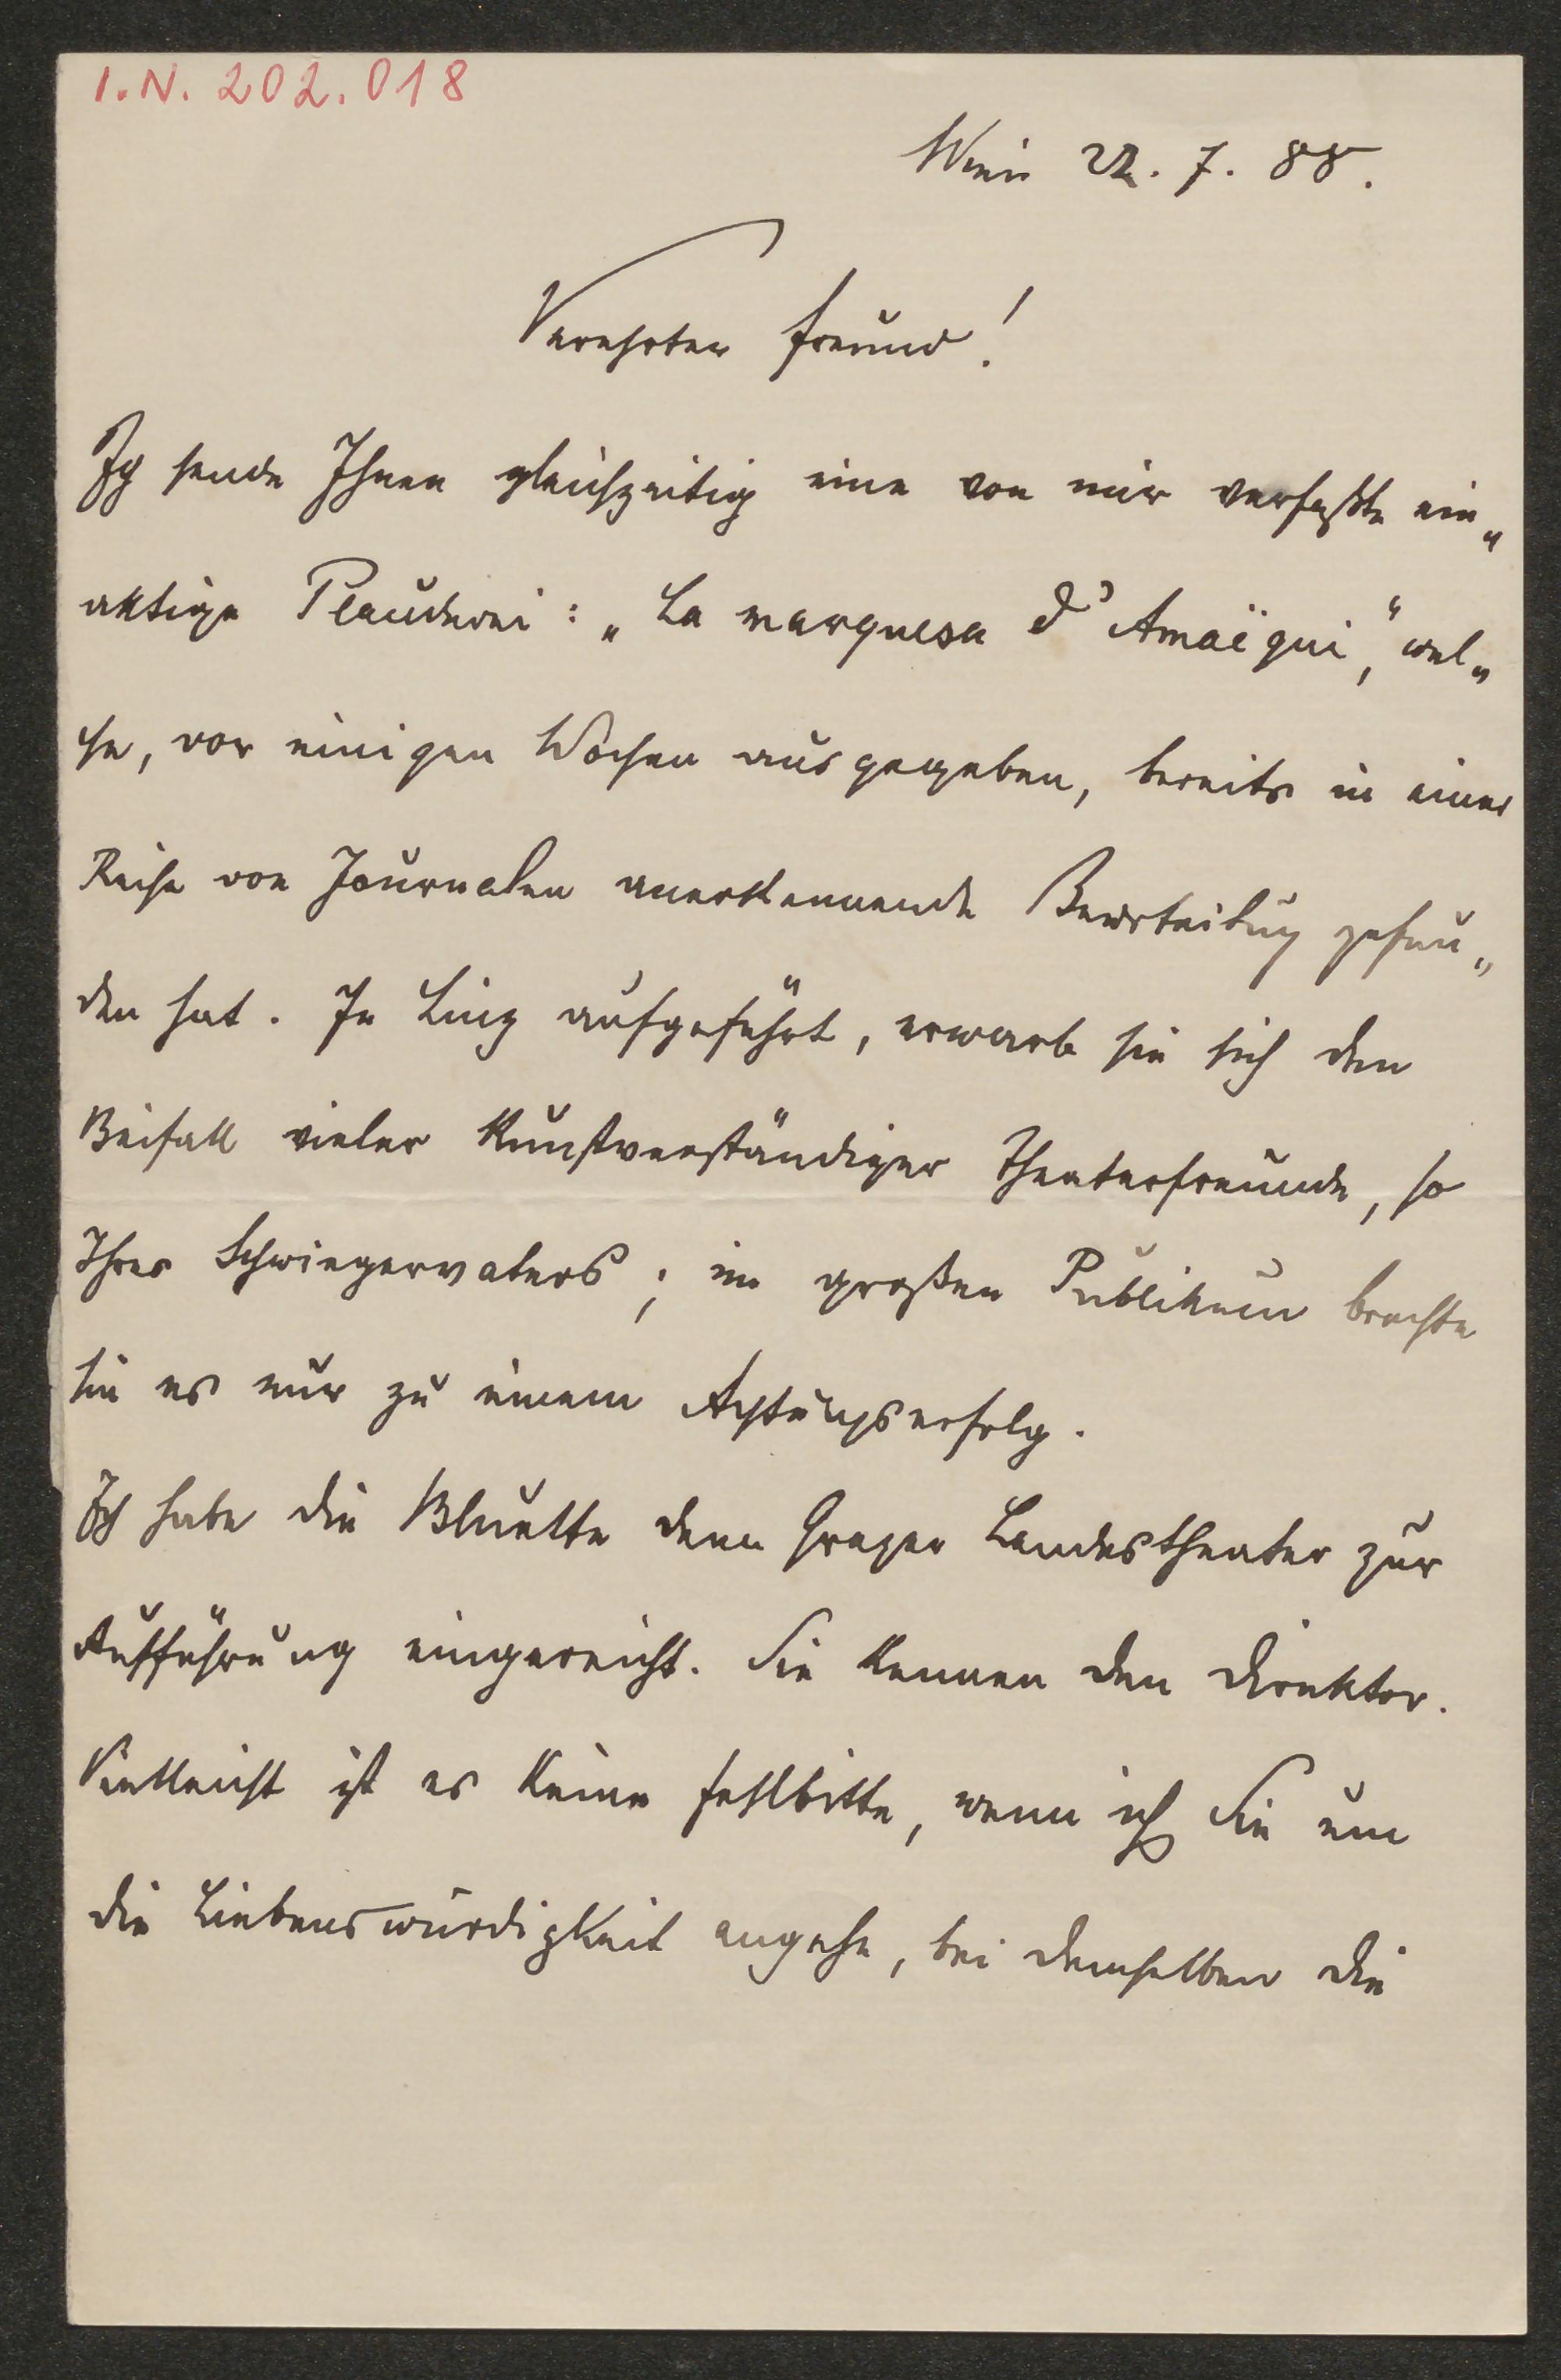 I.N. 202.018
Wien 22. 7. 88.
Verehrter Freund!
Ich sende Ihnen gleichzeitig eine von mir verfaßte ein„
aktige Plauderei: „La marquesa d'Amaëgui“, wel„
che, vor einigen Wochen ausgegeben, bereits in einer
Reihe von Journalen anerkennende Beurteilung gefun„
den hat. In Linz aufgeführt, erwarb sie sich den
Beifall vieler kunstverständiger Theaterfreunde, so
Ihres Schwiegervaters; im großen Publikum brachte
sie es nur zu einem Achtungserfolg.
Ich habe die Bluette dem Grazer Landestheater zur
Aufführung eingereicht. Sie kennen den Direktor.
Vielleicht ist es keine Fehlbitte, wenn ich Sie um
die Liebenswürdigkeit angehe, bei demselben die